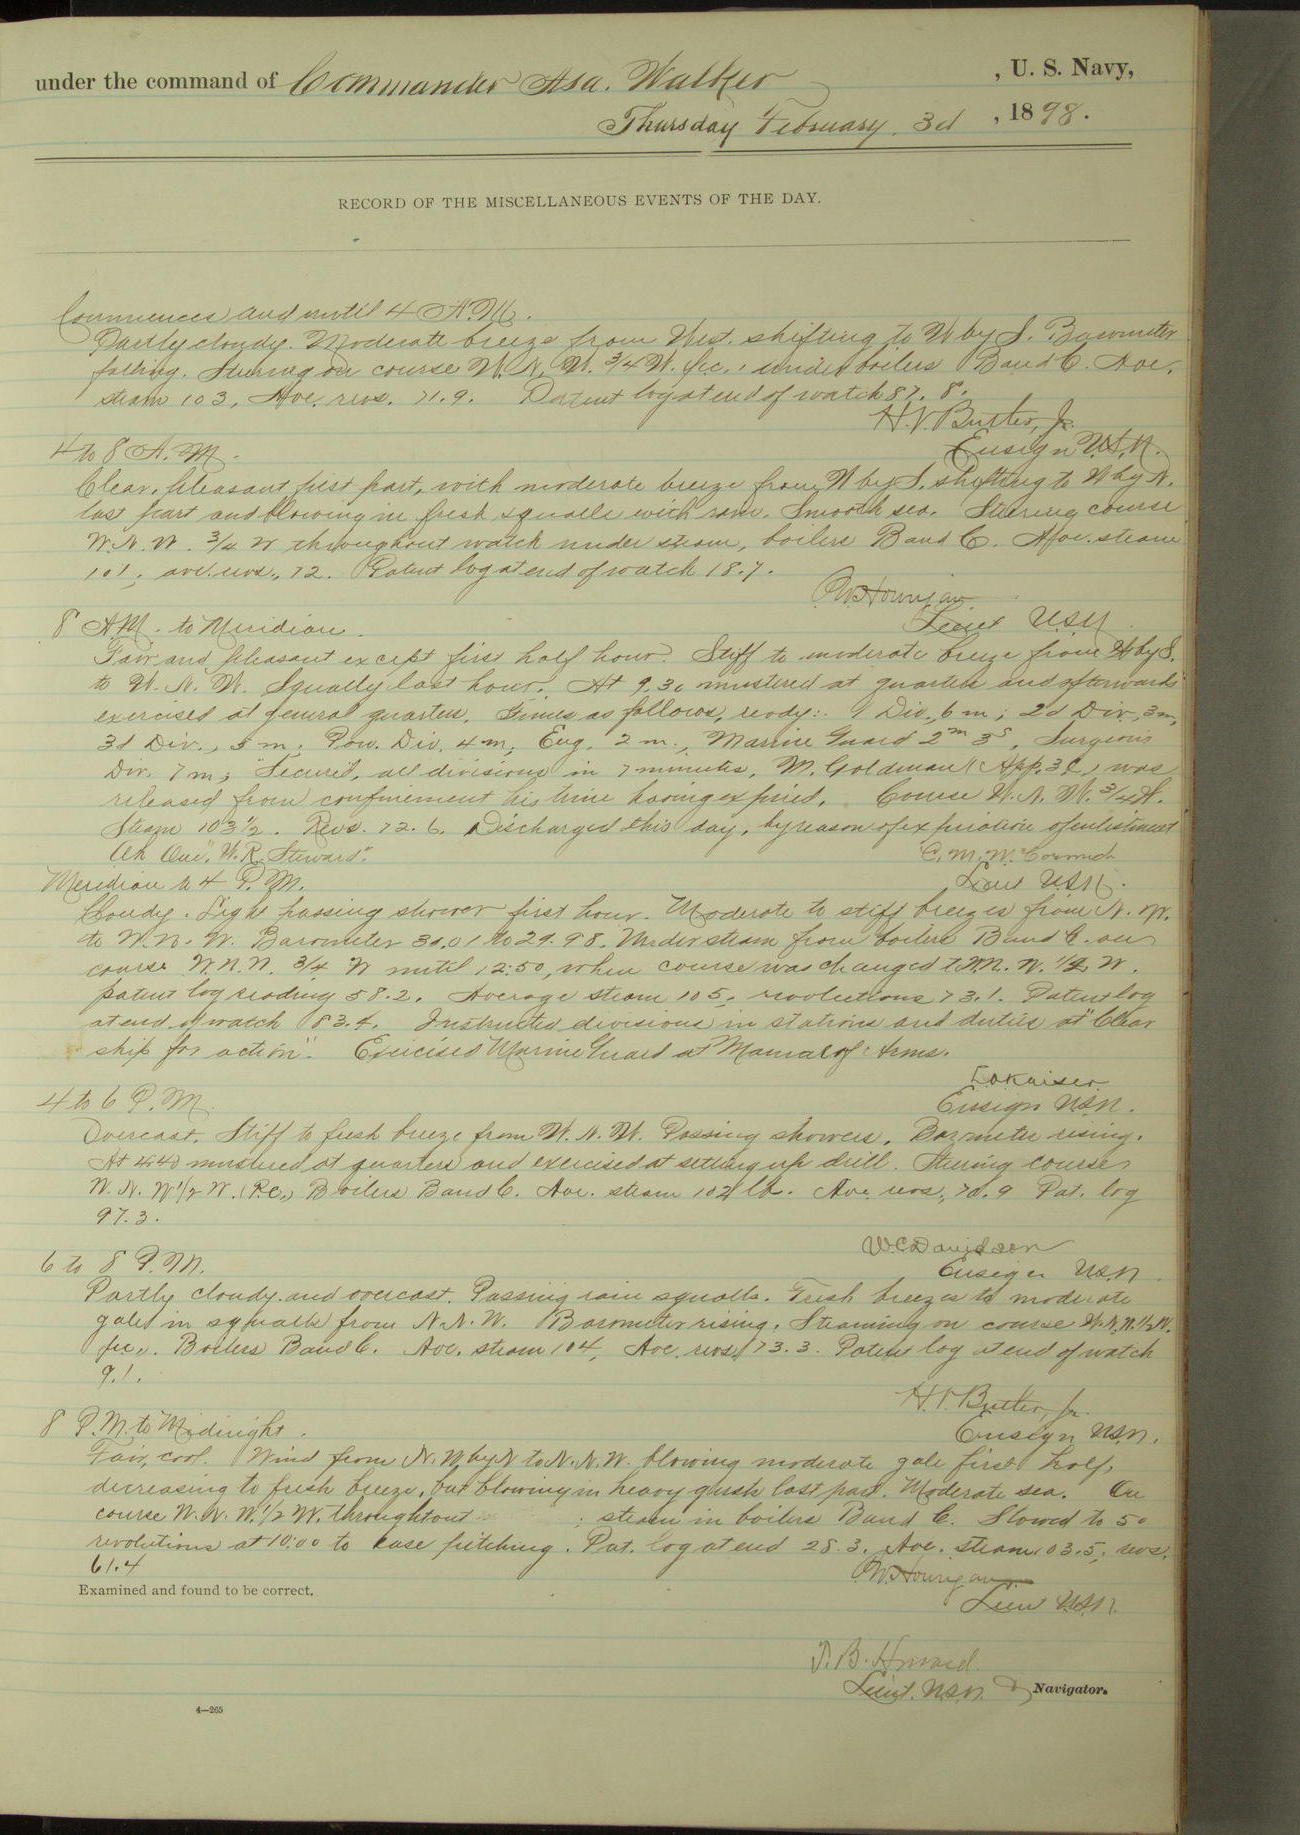 under the command of Commander Asa Walker , U. S. Navy,
Thursday February 3d , 1898.
RECORD OF THE MISCELLANEOUS EVENTS OF THE DAY.
Commences and until 4 A.M.
Partly cloudy. Moderate breeze from West shifting to W by S. Barometer
falling. Steering on course W. N. W. 3/4 W. p.c., under boilers B and C. Ave.
steam 103, Ave. revs. 71.9. Patent log at end of watch 87.8.
H. V. Butler, Jr.
Ensign U.S.N.
4 to 8 A.M.
Clear, pleasant first part, with moderate breeze from W by S. shifting to W by N.
last part and blowing in fresh squalls with rain. Smooth sea. Steering course
W. N. W. 3/4 W throughout watch under steam, boilers B and C. Ave. steam
101, ave. revs., 72. Patent log at end of watch 18.7.
P.W. Hourigan
Lieut USN
8 AM. to Meridian.
Fair and pleasant except first half hour. Stiff to moderate breeze from W by S.
to W. N. W. Squally last hour. At 9.30 mustered at quarters and afterwards
exercised at general quarters. Times as follows, ready: 1 Div., 6 m; 2d Div, 3m,
3d Div., 5 m; Pow. Div. 4 m, Eng. 2 m., Marine Guard 2m 3s, Surgeons
Div. 7 m; "Secured", all divisions in 7 minutes. M. Goldman (App. 3C) was
released from confinement his time having expired. Course W. N. W. 3/4 W.
Steam 103 1/2. Revs. 72.6. Discharged this day, by reason of expiration of enlistment
Ah Que, "W. R. Steward".
C. M. McCormick
Lieut USN.
Meridian to 4 P.M.
Cloudy. Light passing shower first hour. Moderate to stiff breezes from N. W.
to W. N. W. Barometer 30.01 to 29.98. Under steam from boilers B and C. on
course W. N. W. 3/4 W until 12:50, when course was changed to W. N. W. 1/2 W.
patent log reading 58.2. Average steam 105, revolutions 73.1. Patent log
at end of watch 83.4. Instructed divisions in stations and duties at "Clear
ship for action". Exercised Marine Guard at Manual of Arms.
L. A. Kaiser
Ensign USN.
4 to 6 P.M.
Overcast. Stiff to fresh breeze from W. N. W. Passing showers. Barometer rising.
At 4:40 mustered at quarters and exercised at setting up drill. Steering course
W. N. W 1/2 W. (P.C.,) Boilers B and C. Ave. steam 102 lb. Ave revs, 70.9 Pat. log
97.3.
W.C. Davidson
Ensign USN
6 to 8 P.M.
Partly cloudy and overcast. Passing rain squalls. Fresh breezes to moderate
gale in squalls from N. N. W. Barometer rising. Steaming on course W. N. W. 1/2 W.
p.c.,. Boilers B and C. Ave. steam 104, Ave. revs. 73.3. Patent log at end of watch
9.1.
H. V. Butler, Jr.
Ensign USN.
8 P.M. to Midnight.
Fair, cool. Wind from N. W. by N to N. N. W. blowing moderate gale first half,
decreasing to fresh breeze, but blowing in heavy gusts last part. Moderate sea. On
course W. N. W. 1/2 W. throughtout ; steam in boilers B and C. Slowed to 50
revolutions at 10:00 to ease pitching. Pat. log at end 28.3. Ave. steam 103.5, revs.
61.4
P.W. Hourigan
Lieut USN.
Examined and found to be correct.
T. B. Howard
Lieut. U.S.N. Navigator.
4—265